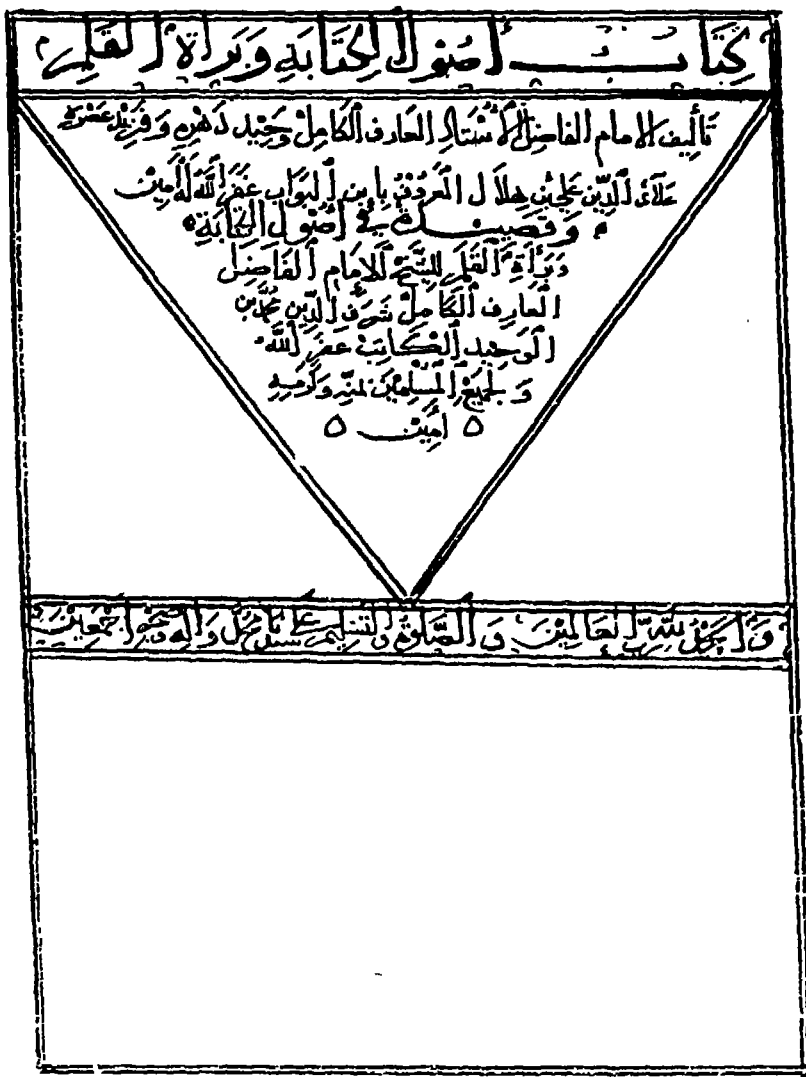 كتاب أصول الكتابة وبراة القلم
تأليف الامام الفاضل الأستاذ العارف الكامل وحيد دهره وفريد عصره
علاء الدين علي بن هلال المعروف بابن البواب غفر الله له آمين
وقصيدة في أصول الكتابة
وبراة القلم للشيخ الامام الفاضل
العارف الكامل شرف الدين محمد بن
الوحيد الكاتب غفر الله
ولجميع المسلمين بمنه وكرمه
امين
والحمد لله رب العالمين والصلوة والتسليم على سيدنا محمد وآله وصحبه اجمعين